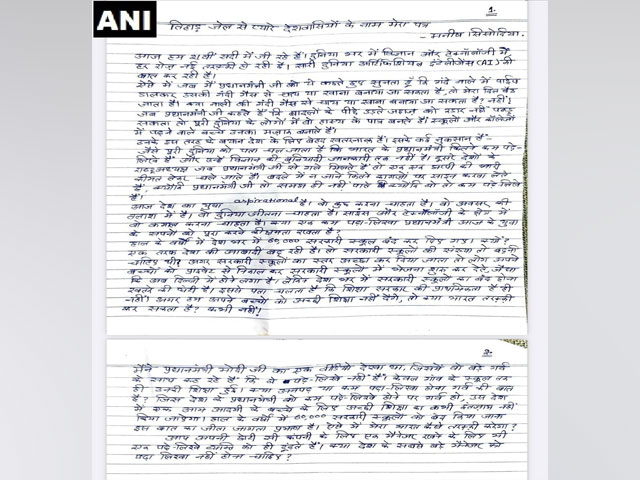 ANI
1.
तिहाड़ जेल से प्यारे देशवासियों के नाम मेरा पत्र
- मनीष सिसोदिया.
आज हम 21वीं सदी में जी रहे हैं। दुनिया भर में विज्ञान और टेक्नोलॉजी में
हर रोज़ नई तरक्की हो रही है। सारी दुनिया आर्टिफिशियल इंटेलीजेंस (AI) की
बात कर रही है।
ऐसे में जब मैं प्रधानमंत्री जी को ये कहते हुए सुनता हूँ कि गंदे नाले में पाईप
डालकर उसकी गंदी गैस से चाय या खाना बनाया जा सकता है, तो मेरा दिल बैठ
जाता है। क्या नाली की गंदी गैस से चाय या खाना बनाया जा सकता है? नहीं।
जब प्रधानमंत्री कहते हैं कि बादलों के पीछे उड़ते जहाज़ को रडार नहीं पकड़
सकता तो पूरी दुनिया के लोगों में वो हास्य के पात्र बनते हैं। स्कूलों और कॉलेजों
में पढ़ने वाले बच्चे उनका मज़ाक बनाते हैं।
उनके इस तरह के बयान देश के लिए बेहद खतरनाक हैं। इसके कई नुकसान हैं-
जैसे पूरी दुनिया को पता चल जाता है कि भारत के प्रधानमंत्री कितने कम पढ़े-
लिखे हैं और उन्हें विज्ञान की बुनियादी जानकारी तक नहीं है। दूसरे देशों के
राष्ट्राध्यक्ष जब प्रधानमंत्री जी से गले मिलते हैं तो एक एक झप्पी की भारी
कीमत लेकर चले जाते हैं। बदले में न जाने कितने कागज़ों पर साइन करवा लेते
हैं, क्योंकि प्रधानमंत्री जी तो समझ ही नहीं पाते क्योंकि वो तो कम पढ़े लिखे
हैं।
आज देश का युवा aspirational है। वो कुछ करना चाहता है। वो अवसर की
तलाश में है। वो दुनिया जीतना चाहता है। साइंस और टेक्नोलॉजी के क्षेत्र में
वो कमाल करना चाहता है। क्या एक कम पढ़ा-लिखा प्रधानमंत्री आज के युवा
के सपनों को पूरा करने की क्षमता रखता है?
हाल के वर्षों में देश भर में 60,000 सरकारी स्कूल बंद कर दिए गए। क्यों?
एक तरफ देश की आबादी बढ़ रही है। तो सरकारी स्कूलों की संख्या तो बढ़नी
चाहिए थी? अगर सरकारी स्कूलों का स्तर अच्छा कर दिया जाता तो लोग अपने
बच्चों को प्राइवेट से निकाल कर सरकारी स्कूलों में भेजना शुरू कर देते, जैसा
कि अब दिल्ली में होने लगा है। लेकिन देश भर में सरकारी स्कूलों का बंद होना
खतरे की घंटी है। इससे पता चलता है कि शिक्षा सरकार की प्राथमिकता है ही
नहीं। अगर हम अपने बच्चों को अच्छी शिक्षा नहीं देंगे, तो क्या भारत तरक्की
कर सकता है? कभी नहीं!
2.
मैंने प्रधानमंत्री मोदी जी का एक वीडियो देखा था, जिसमें वो बड़े गर्व
के साथ कह रहे हैं कि वे पढ़े-लिखे नहीं हैं। केवल गांव के स्कूल तक
ही उनकी शिक्षा हुई। क्या अनपढ़ या कम पढ़ा-लिखा होना गर्व की बात
है? जिस देश के प्रधानमंत्री को कम पढ़े-लिखे होने पर गर्व हो, उस देश
में एक आम आदमी के बच्चे के लिए अच्छी शिक्षा का कभी इंतजाम नहीं
किया जाएगा। हाल के वर्षों में 60,000 सरकारी स्कूलों को बंद किया जाना
इस बात का जीता जागता प्रमाण है। ऐसे में मेरा भारत कैसे तरक्की करेगा?
आप अपनी छोटी सी कंपनी के लिए एक मैनेजर रखने के लिए भी
एक पढ़े-लिखे व्यक्ति को ही ढूंढते हैं। क्या देश के सबसे बड़े मैनेजर को
पढ़ा लिखा नहीं होना चाहिए?